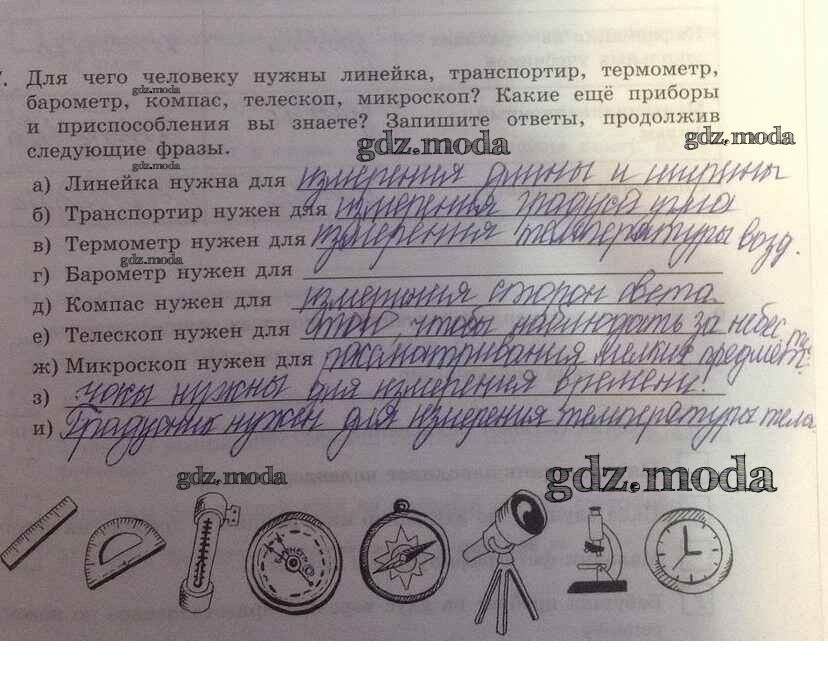 7. Для чего человеку нужны линейка, транспортир, термометр,
gdz.moda
барометр, компас, телескоп, микроскоп? Какие ещё приборы
и приспособления вы знаете? Запишите ответы, продолжив
gdz.moda
gdz.moda
следующие фразы.
gdz.moda
а) Линейка нужна для измерения длины и ширины
б) Транспортир нужен для измерения градуса угла
в) Термометр нужен для измерения температуры возд.
gdz.moda
г) Барометр нужен для
д) Компас нужен для измерения сторон света
е) Телескоп нужен для того, чтобы наблюдать за небес. т
ж) Микроскоп нужен для рассматривания мелких предмет.
з) часы нужны для измерения времени!
и) Градусник нужен для измерения температуры тела
gdz.moda
gdz.moda